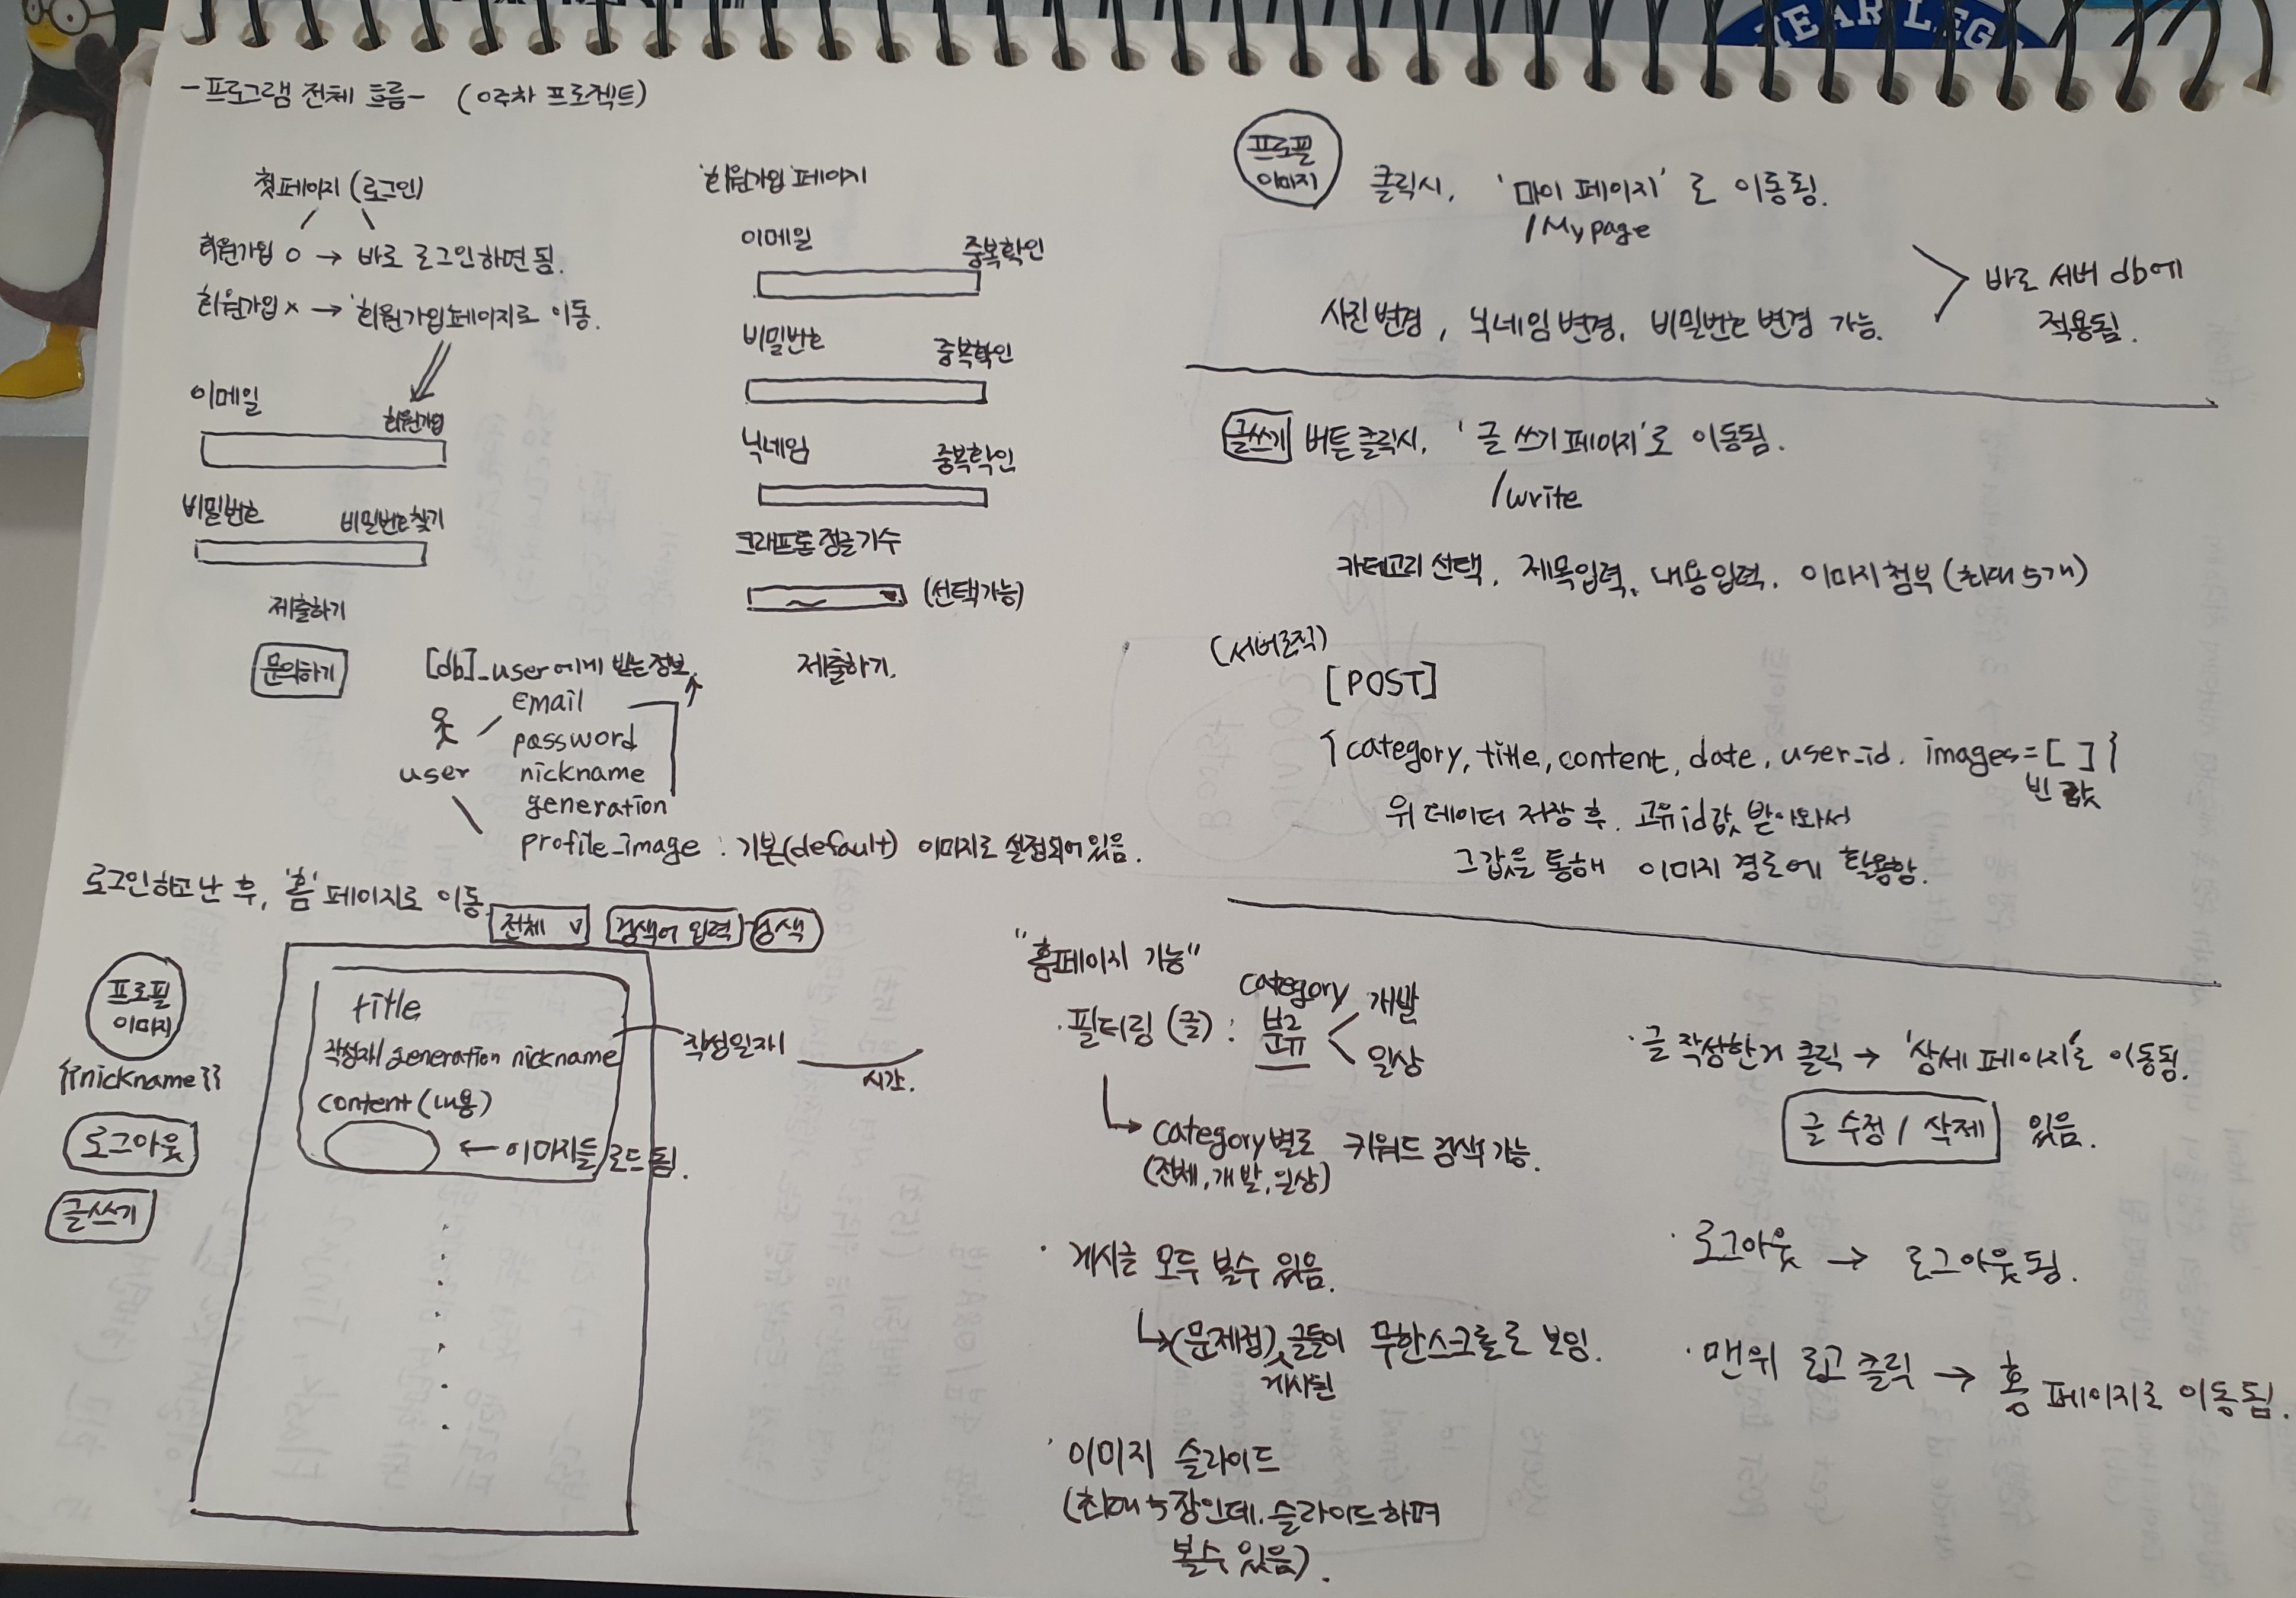 -프로그램 전체 흐름- (0주차 프로젝트)
첫페이지 (로그인)
회원가입 O → 바로 로그인하면 됨.
회원가입 x → '회원가입'페이지로 이동.
이메일
회원가입
비밀번호 비밀번호찾기
제출하기
문의하기
'회원가입'페이지
이메일 중복확인
비밀번호 중복확인
닉네임 중복확인
크래프톤 정글 기수
(선택가능)
제출하기.
[db]_user에게 받는 정보
email
password
nickname
generation
user
profile_image : 기본(default) 이미지로 설정되어 있음.
로그인하고 난 후, '홈' 페이지로 이동.
전체 v 검색어 입력 검색
프로필
이미지
{{nickname}}
로그아웃
글쓰기
title
작성자/generation nickname
작성일자/
시간.
content (내용)
← 이미지들/로드 됨.
프로필
이미지
클릭시, '마이 페이지'로 이동됨.
/Mypage
사진 변경, 닉네임 변경, 비밀번호 변경 가능.
바로 서버 db에
적용됨.
글쓰기 버튼 클릭시, '글 쓰기 페이지'로 이동됨.
/write
카테고리 선택, 제목입력, 내용입력, 이미지 첨부 (최대 5개)
(서버로직)
[POST]
{category, title, content, date, user_id, images=[ ]}
빈 값
위 데이터 저장 후, 고유id값 받아와서
그 값을 통해 이미지 경로에 활용함.
"홈페이지 기능"
category
·필터링 (글) : 분류 < 개발
일상
↳ category별로 키워드 검색 가능.
(전체, 개발, 일상)
· 게시글 모두 볼수 있음.
↳ (문제점) 글들이 무한스크롤로 보임.
게시된
· 이미지 슬라이드
(최대 5장인데, 슬라이드하며
볼수 있음).
· 글 작성한거 클릭 → '상세 페이지'로 이동됨.
글 수정 / 삭제 있음.
· 로그아웃 → 로그아웃됨.
· 맨위 로고 클릭 → 홈 페이지로 이동됨.
YEAR LEG